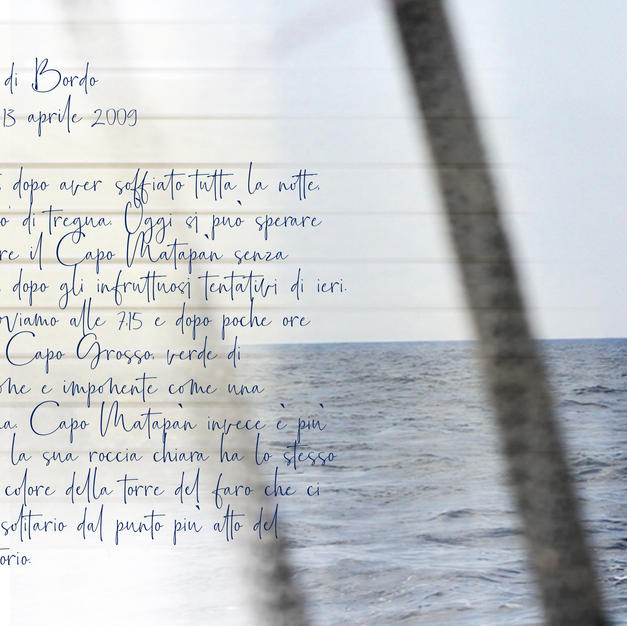 di Bordo
13 aprile 2009
dopo aver soffiato tutta la notte,
di tregua. Oggi si può sperare
re il Capo Matapàn senza
dopo gli infruttuosi tentativi di ieri.
oviamo alle 7.15 e dopo poche ore
Capo Grosso, verde di
che e imponente come una
na. Capo Matapàn invece è più
la sua roccia chiara ha lo stesso
colore della torre del faro che ci
solitario dal punto più alto del
torio.